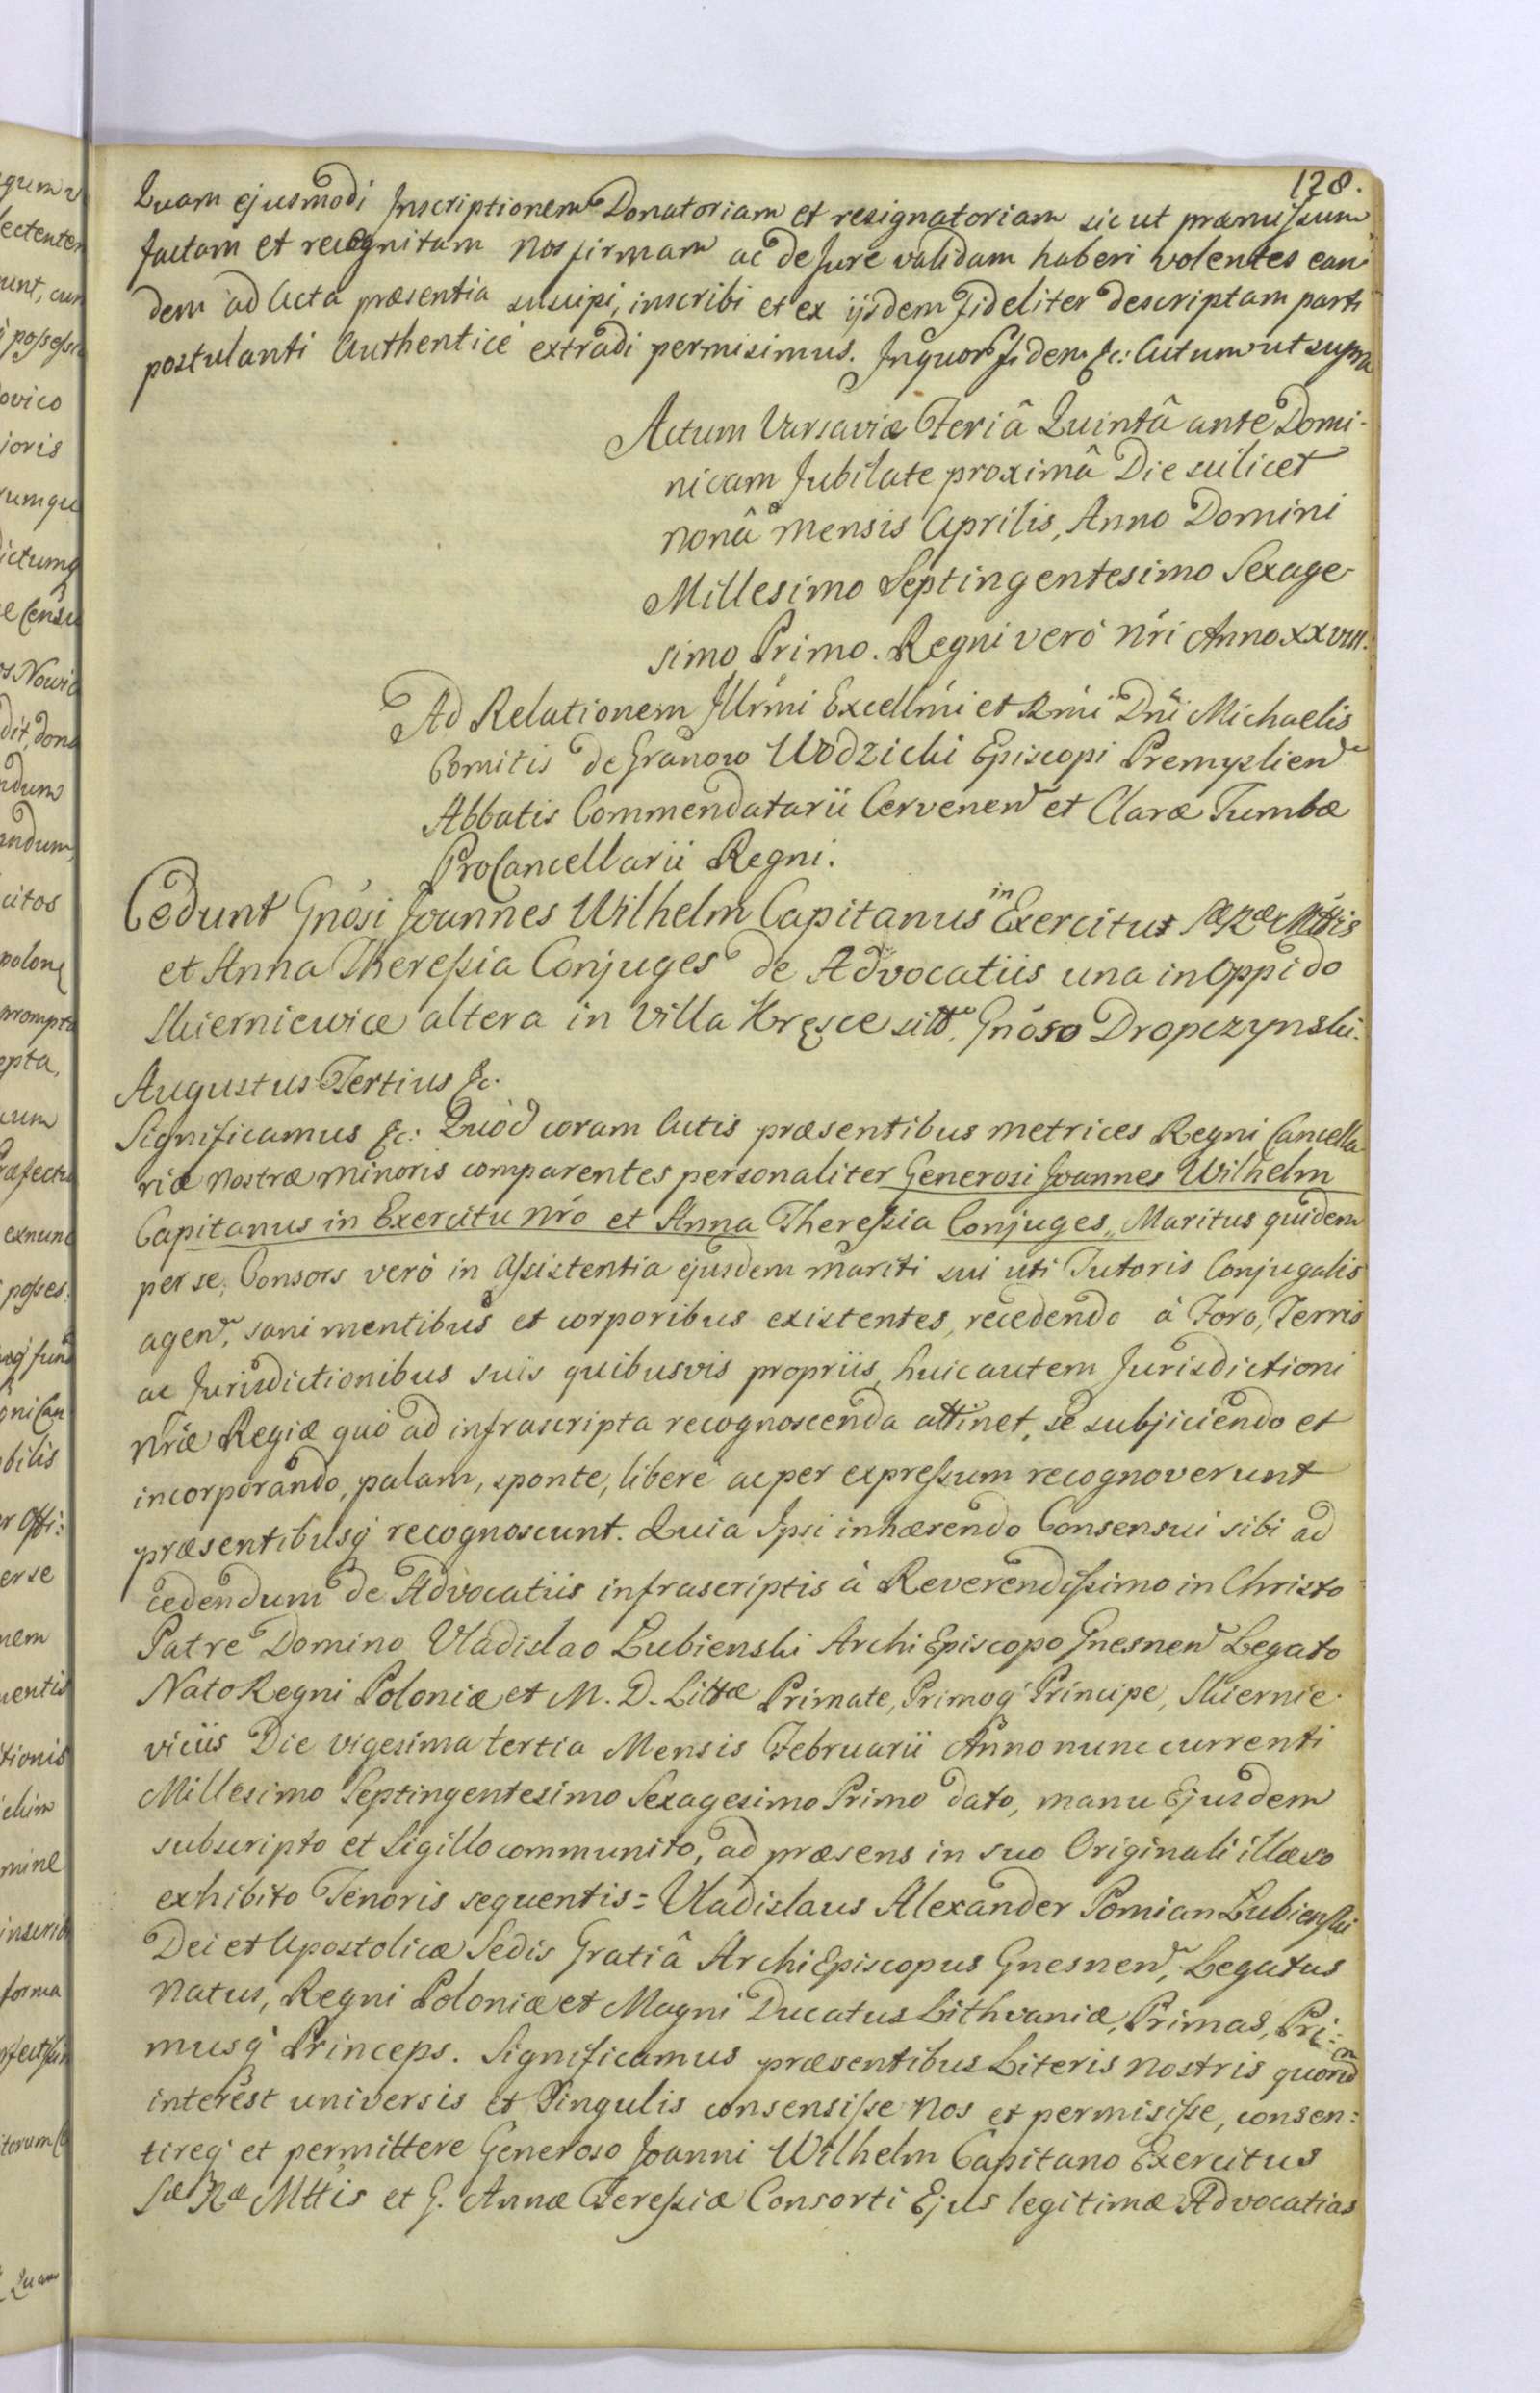 128.
Quam ejusmodi Inscriptionem Donatoriam et resignatoriam sic ut præmissum
factam et recognitam Nos firmam ac de Jure validam haberi volentes ean
dem ad Acta præsentia suscipi, inscribi et ex ijsdem fideliter descriptam parti
postulanti Authenticè extradi permisimus. In quor. fidem &c: Actum ut supra
Actum Varsaviæ Feriâ Quintâ ante Domi-
nicam Jubilate proximâ Die scilicet
nonâ Mensis Aprilis, Anno Domini
Millesimo Septingentesimo Sexage-
simo Primo. Regni verò Nri Anno XXVIII.
Ad Relationem Illrmi Excellmi et Rmi Dni Michaelis
Comitis de Granow Wodzicki Episcopi Premyslien
Abbatis Commendatarii Cervenen et Claræ Tumbæ
ProCancellarii Regni.
Cedunt Gnosi Joannes Wilhelm Capitanus in Exercitus Sæ Ræ Mttis
et Anna Theressia Conjuges de Advocatiis una in Oppido
Skierniewice altera in Villa Kręsce sitt. Gnoso Dropczynski.
Augustus Tertius &c.
Significamus &c: Quòd coram Actis præsentibus Metrices Regni Cancella
riæ Nostræ minoris comparentes personaliter Generosi Joannes Wilhelm
Capitanus in Exercitu Nro et Anna Theressia Conjuges, Maritus quidem
per se, Consors verò in Assistentia ejusdem Mariti sui uti Tutoris Conjugalis
agen, sani mentibus et corporibus existentes, recedendo à Foro, Terris
ac Jurisdictionibus suis quibusvis propriis, huic autem Jurisdictioni
Nræ Regiæ quò ad infrascripta recognoscenda attinet, se subjiciendo et
incorporando, palam, sponte, liberè ac per expressum recognoverunt
præsentibusq recognoscunt. Quia Ipsi inhærendo Consensui sibi ad
cedendum de Advocatiis infrascriptis à Reverendissimo in Christo
Patre Domino Vladislao Łubienski ArchiEpiscopo Gnesnen Legato
Nato Regni Poloniæ et M. D. Littæ Primate, Primoq Principe, Skiernie-
viciis Die vigesima tertia Mensis Februarii Anno nunc currenti
Millesimo Septingentesimo Sexagesimo Primo dato, manu Ejusdem
subscripto et Sigillo communito, ad præsens in suo Originali illæso
exhibito Tenoris sequentis = Vladislaus Alexander Pomian Łubienski
Dei et Apostolicæ Sedis Gratiâ ArchiEpiscopus Gnesnen, Legatus
Natus, Regni Poloniæ et Magni Ducatus Lithvaniæ, Primas, Pri=
musq Princeps. Significamus præsentibus Literis Nostris quorum
interest universis et Singulis consensisse Nos et permisisse, consen=
tireq et permittere Generoso Joanni Wilhelm Capitano Exercitus
Sæ Ræ Mttis et G. Annæ Teressiæ Consorti Ejus legitimæ Advocatias